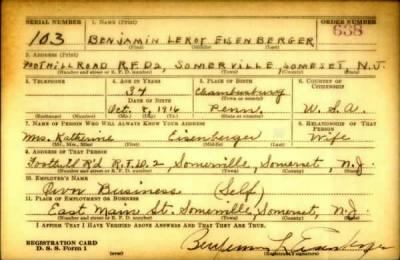 SERIAL NUMBER 1. NAME (Print) ORDER NUMBER
103 BENJAMIN LEROY EISENBERGER 638
(First) (Middle) (Last)
2. ADDRESS (Print)
FOOTHILL ROAD R.F.D 2, SOMERVILLE, SOMESET, N.J.
(Number and street or R. F. D. number) (Town) (County) (State)
3. TELEPHONE 4. AGE IN YEARS 5. PLACE OF BIRTH 6. COUNTRY OF CITIZENSHIP
34 Chambersburg
DATE OF BIRTH (Town or county)
Oct. 8, 1916 Penn. U.S.A.
(Exchange) (Number) (Mo.) (Day) (Yr.) (State or country)
7. NAME OF PERSON WHO WILL ALWAYS KNOW YOUR ADDRESS 8. RELATIONSHIP OF THAT PERSON
Mrs. Katherine Eisenberger Wife
(Mr., Mrs., Miss) (First) (Middle) (Last)
9. ADDRESS OF THAT PERSON
Foothill R'd R.F.D. 2 Somerville, Somerset, N.J.
(Number and street or R. F. D. number) (Town) (County) (State)
10. EMPLOYER'S NAME
Own Business (Self)
11. PLACE OF EMPLOYMENT OR BUSINESS
East Main St. Somerville, Somerset, N.J.
(Number and street or R. F. D. number) (Town) (County) (State)
I AFFIRM THAT I HAVE VERIFIED ABOVE ANSWERS AND THAT THEY ARE TRUE.
REGISTRATION CARD
D. S. S. Form 1 Benjamin L. Eisenberger